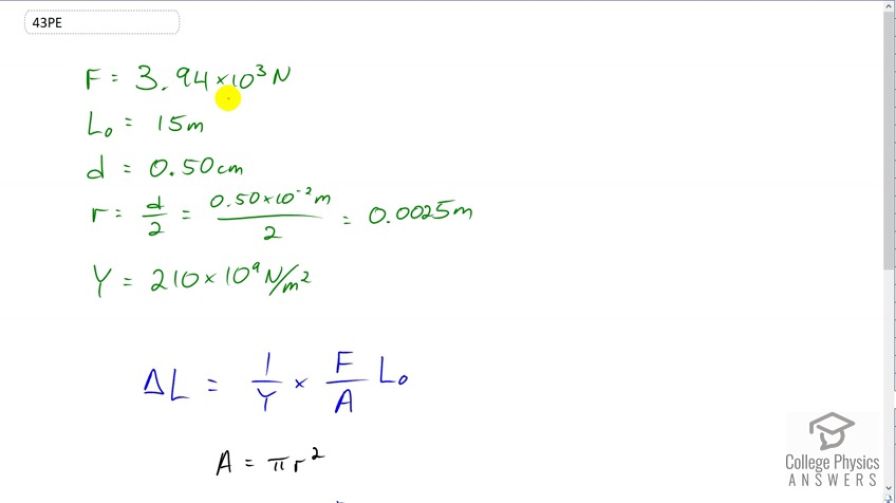 43PE
F = 3.94×10³ N
L₀ = 15m
d = 0.50cm
r = d/2 = 0.50×10⁻²m/2 = 0.0025m
Y = 210×10⁹ N/m²
ΔL = 1/Y × F/A L₀
A = πr²
College Physics
ANSWERS